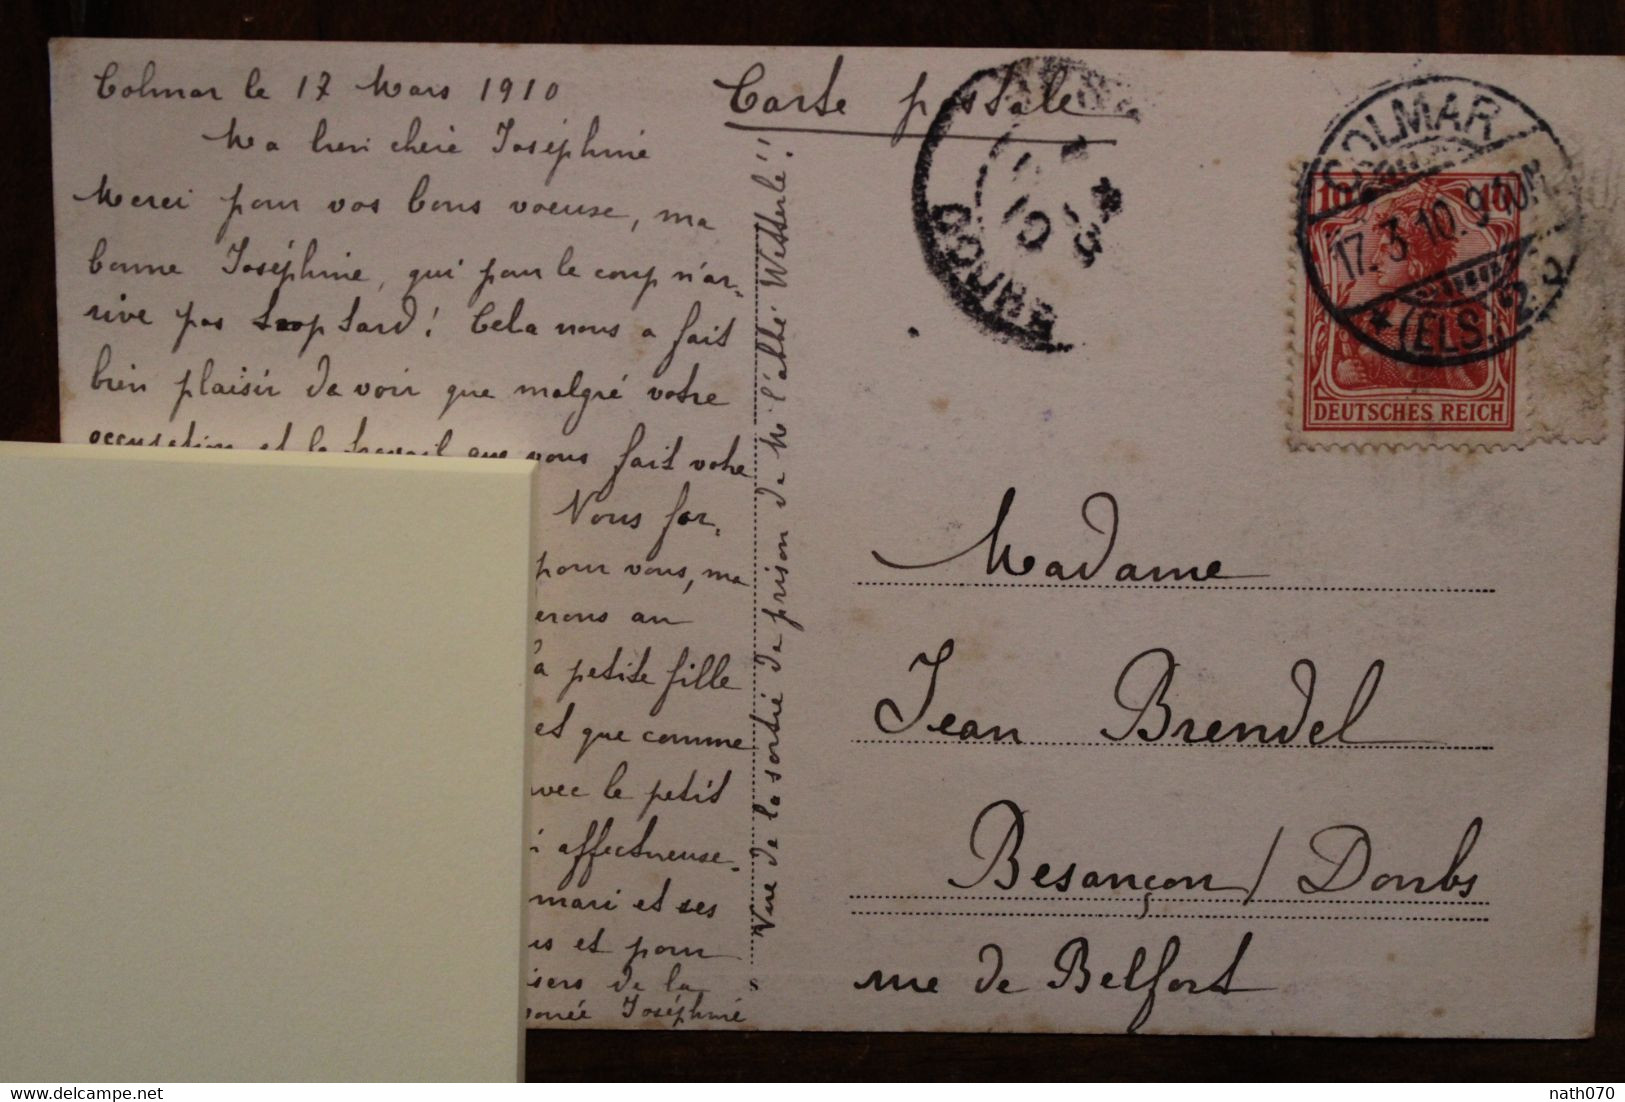 Colmar le 17 Mars 1910
Ma bien chère Joséphine
Merci pour vos bons voeuse, ma
bonne Joséphine, qui pour le coup n'ar-
rive pas trop tard! Cela nous a fait
bien plaisir de voir que malgré votre
occupation et le travail que vous fait votre
Nous for-
pour vous, ma
erons au
la petite fille
et que comme
avec le petit
i affectueuse-
mari et ses
us et pour
isers de la
Joséphine
Vue de la sortie de prison de M l'abbé Wetterlé!!
Carte postale
COLMAR
17.3.10.9-10N.
* (ELS.) 2
10 10
DEUTSCHES REICH
Madame
Jean Brendel
Besançon / Doubs
rue de Belfort
delcampe.net
nath070